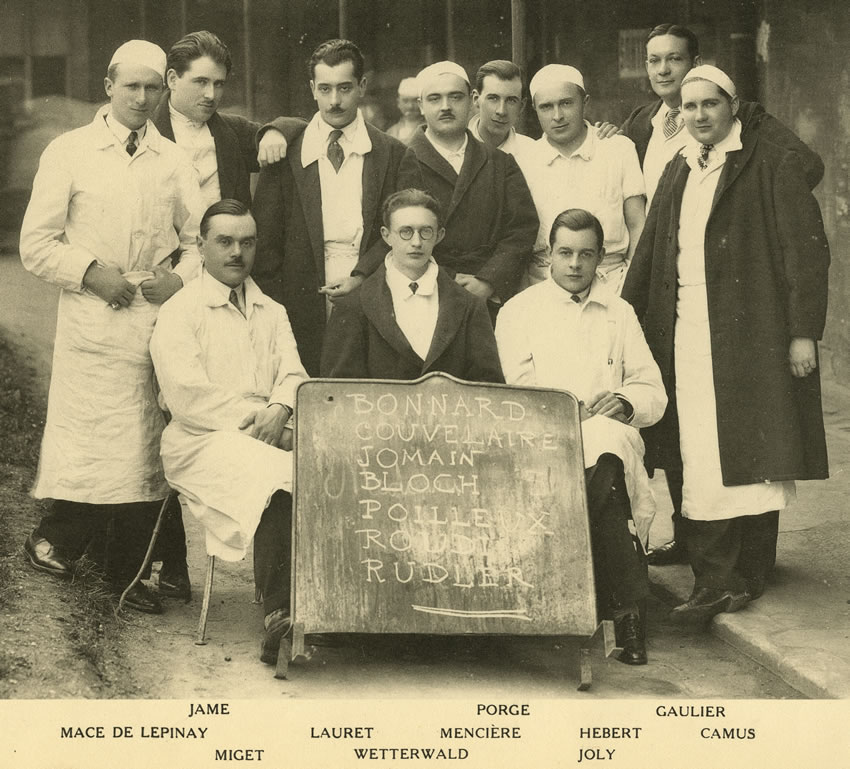 BONNARD
COUVELAIRE
JOMAIN
BLOCH
POILLEUX
RUDLER
JAME PORGE GAULIER
MACE DE LEPINAY LAURET MENCIÈRE HEBERT CAMUS
MIGET WETTERWALD JOLY